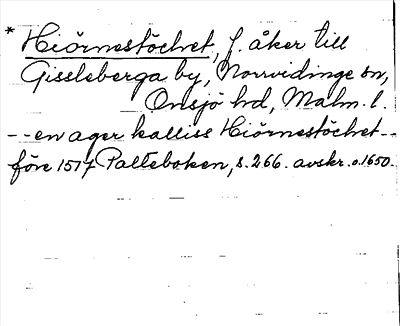 * Hiörnestöchet, f. åker till
Gissleberga by, Norrvidinge sn,
Onsjö hd, Malm. l.
-- en ager kalliss Hiörnestöchet --
före 1517 Palteboken, s. 266. avskr. o. 1650.